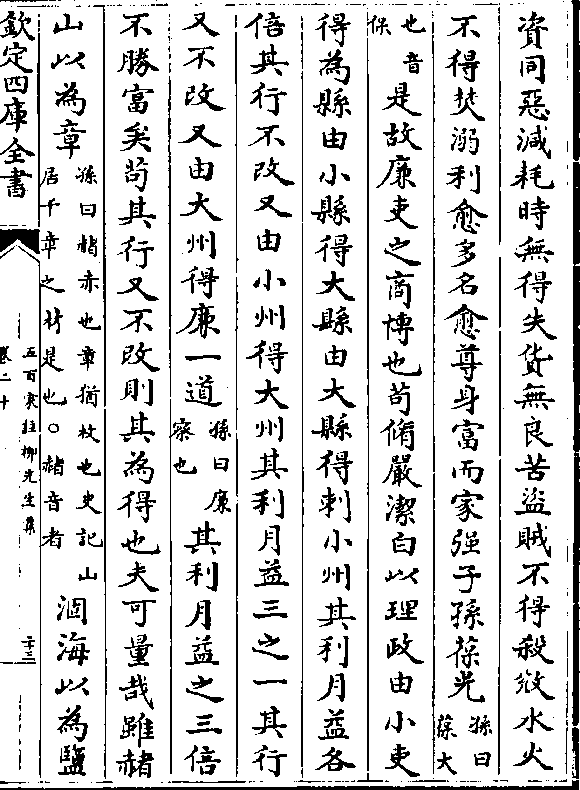 資同惡減耗時無得失貨無良苦盜賊不得殺敓水火
不得焚溺利愈多名愈尊身富而家强子孫葆光孫曰葆大
也音保是故廉吏之商博也苟脩嚴潔白以理政由小吏
得為縣由小縣得大縣由大縣得刺小州其利月益各
倍其行不改又由小州得大州其利月益三之一其行
又不改又由大州得廉一道孫曰廉察也其利月益之三倍
不勝富矣苟其行又不改則其為得也夫可量哉雖赭
山以為章孫曰赭赤也章猶枚也史記山居千章之材是也○赭音者涸海以為鹽
欽定四庫全書
五百家註柳先生集
卷二十
二十三